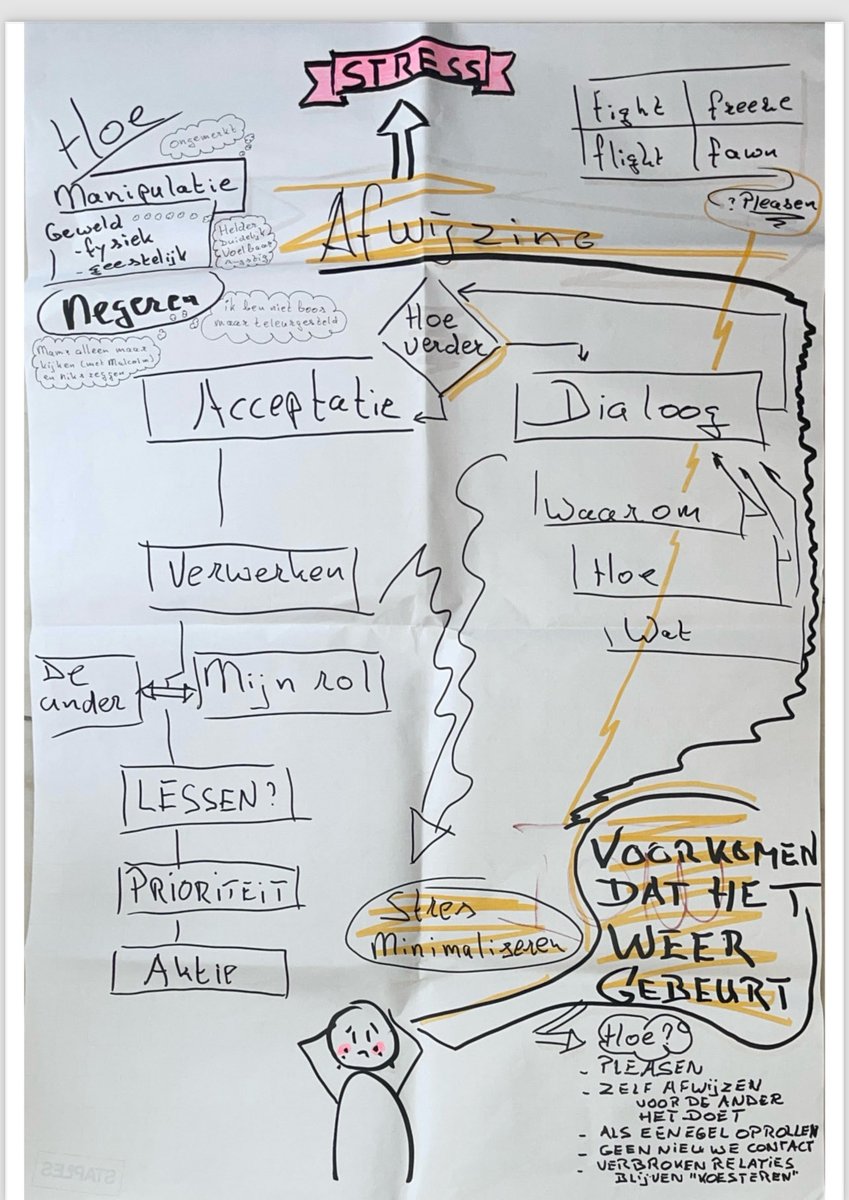 STRESS
fight freeze
flight fawn
? Pleasen
Hoe
ongemerkt
Manipulatie
Geweld
- fysiek
- geestelijk
Helder
Duidelijk
Voelbaar
Negeren
ik ben niet boos
maar teleurgesteld
Mama alleen maar
kijken (met Malcolm)
en niks zeggen
Afwijzing
Hoe
verder
Acceptatie
Dialoog
Waarom
Hoe
Wat
Verwerken
De
ander
Mijn rol
LESSEN?
PRIORITEIT
Aktie
Stres
Minimaliseren
VOORKOMEN
DAT HET
WEER
GEBEURT
Hoe?
- PLEASEN
- ZELF AFWIJZEN
VOOR DE ANDER
HET DOET
- ALS EEN EGEL OPROLLEN
- GEEN NIEUWE CONTACT
- VERBROKEN RELATIES
BLIJVEN "KOESTEREN"
STAPLES